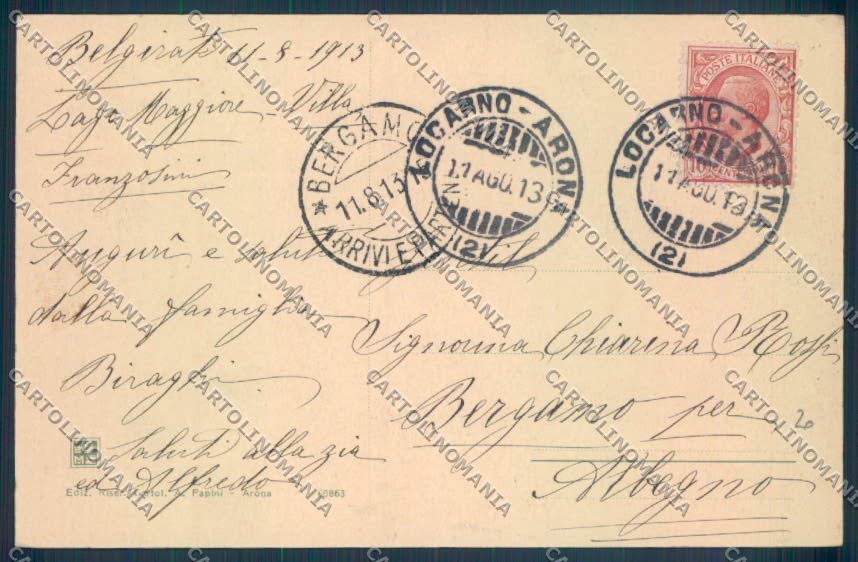 Belgirate 11-8-1913
Lago Maggiore - Villa
Franzosini
Auguri e saluti
dalla famiglia
Biraghi
Saluti alla zia
ed Alfredo
Ediz. Riser. Cartol. A. Papini - Arona 20863
BERGAMO
11.8.13
ARRIVI E PARTENZE
LOCARNO - ARONA
11 AGO. 13
(2)
POSTE ITALIANE
LOCARNO - ARONA
11 AGO. 13
(2)
Gentil
Signorina Chiarina Rossi
Bergamo per
Albegno
CARTOLINOMANIA